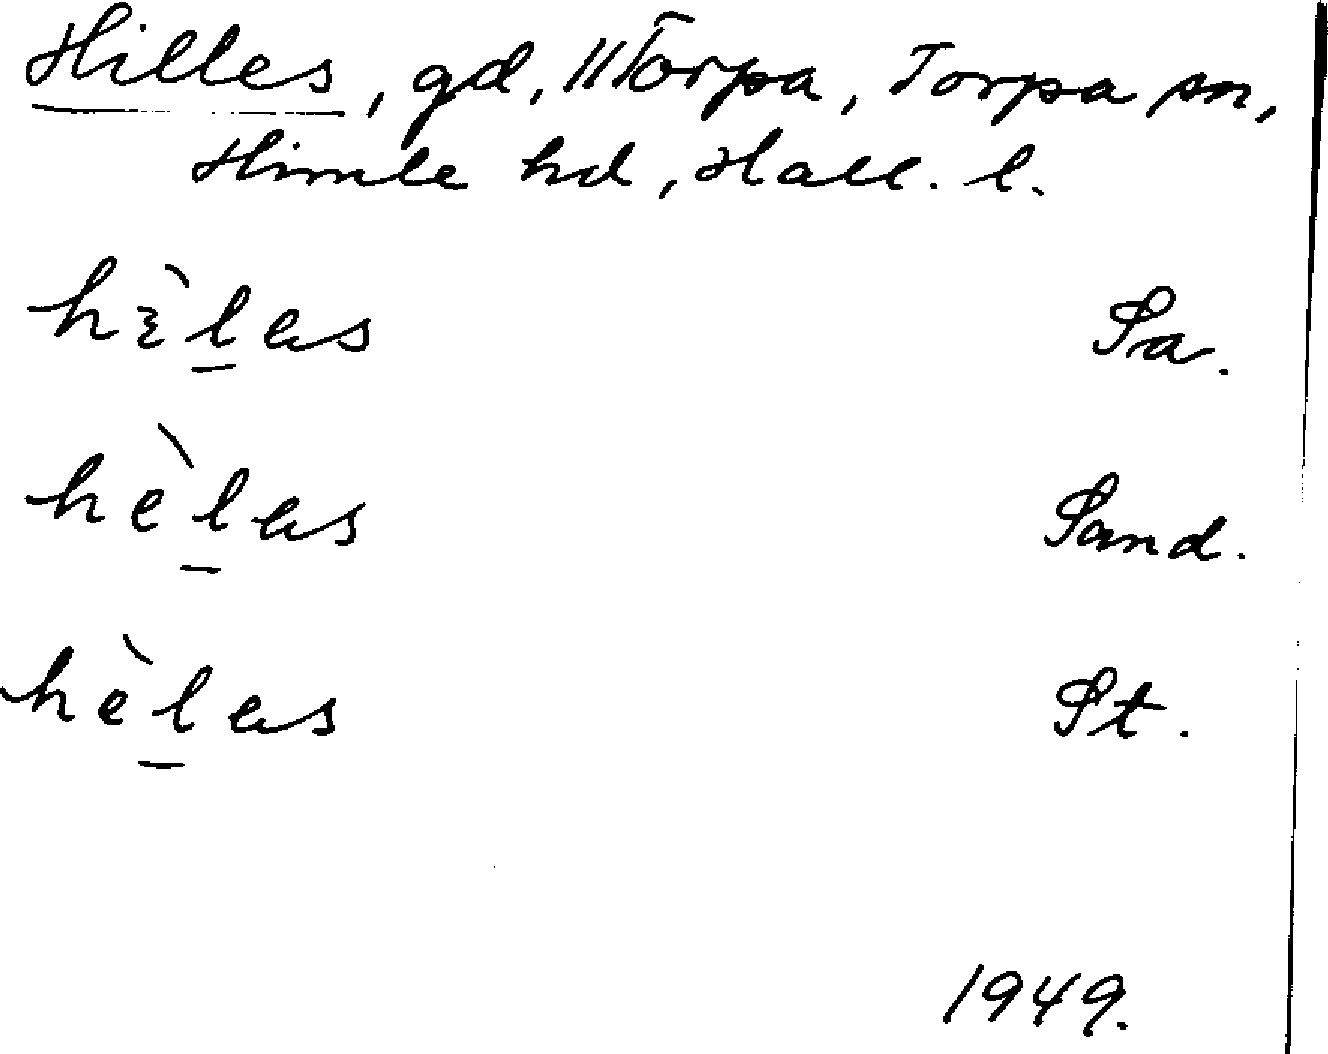 Hilles, gd, //Torpa, Torpa sn,
Himle hd, Hall. l.
hɛ̀l̲as Sa.
hèl̲as Sand.
hèl̲as St.
1949.